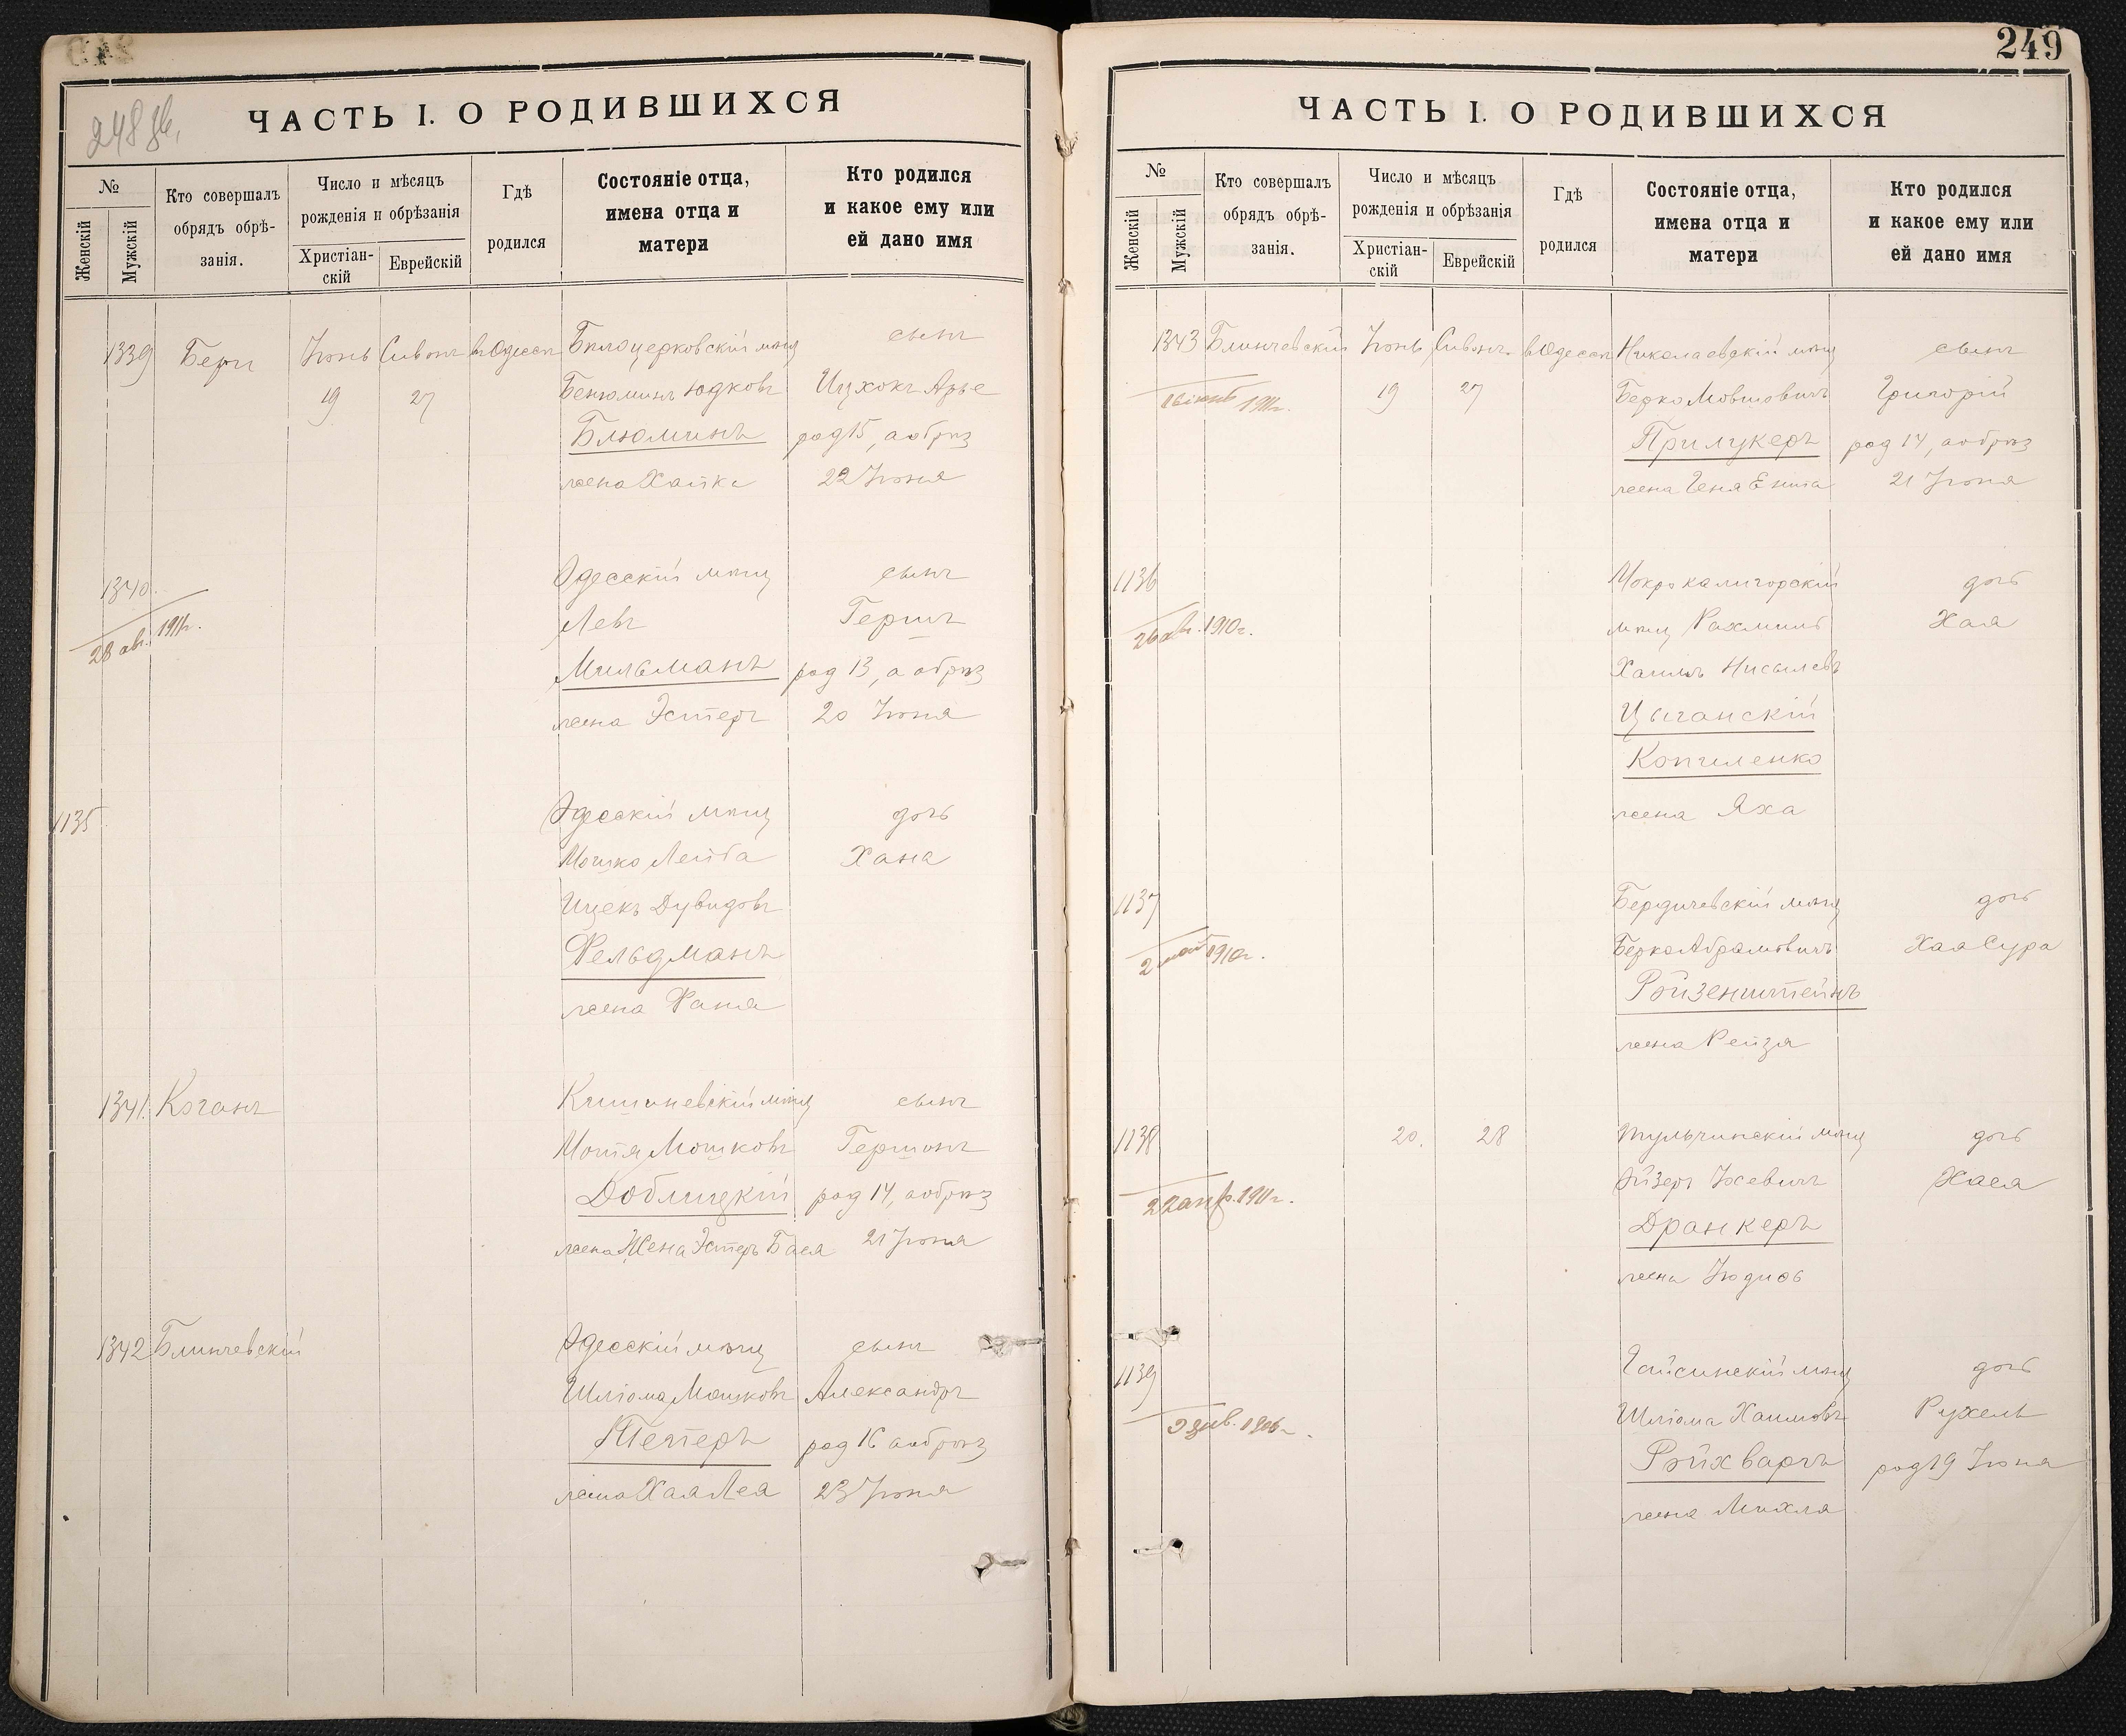 248 об.
ЧАСТЬ I. О РОДИВШИХСЯ
№
Женскій
Мужскій
Кто совершалъ
обрядъ обрѣ-
занія.
Число и мѣсяцъ
рожденія и обрѣзанія
Христіан-
скій
Еврейскій
Гдѣ
родился
Состояніе отца,
имена отца и
матери
Кто родился
и какое ему или
ей дано имя
1339 Іюнь Сивонъ въ Одессѣ Бѣлоцерковскій мѣщ сынъ
19 27 Бенюминъ Юдковъ Ицхокъ Арье
Блюминъ род 15, а обрѣз
жена Хайка 22 Іюня
1340. Одесскій мѣщ сынъ
28 ав. 1911г. Левъ Гершъ
Мильманъ род 13, а обрѣз
жена Эстеръ 20 Іюня
1135 Одесскій мѣщ дочь
Мошко Лейба Хана
Ицекъ Дувидовъ
Фельдманъ
жена Фаня
1341. Коганъ Кишиневскій мѣщ сынъ
Мотя Мошковъ Гершонъ
Доблицкій род 14, а обрѣз
жена Жена Эстеръ Бася 21 Іюня
1342 Блинчевскій Одесскій мѣщ сынъ
Шліома Мошковъ Александръ
род 16 а обрѣз
жена Хая Лея 23 Іюня
249
ЧАСТЬ I. О РОДИВШИХСЯ
№
Женскій
Мужскій
Кто совершалъ
обрядъ обрѣ-
занія.
Число и мѣсяцъ
рожденія и обрѣзанія
Христіан-
скій
Еврейскій
Гдѣ
родился
Состояніе отца,
имена отца и
матери
Кто родился
и какое ему или
ей дано имя
1343 Блинчевскій Іюнь Сивонъ въ Одессѣ Николаевскій мѣщ сынъ
1911г. 19 27 Берко Мовшовичъ Григорій
Прилукеръ род 14, а обрѣз
жена Геня Ента 21 Іюня
1136 Мокрокалигорскій дочь
26 ав. 1910г. мѣщ Рахмиль Хая
Хаимъ Нисылевъ
Цыганскій
Копиленко
жена Яха
1137 Бердичевскій мѣщ дочь
2 май 1910г. Берко Абрамовичъ Хая Сура
Ройзенштейнъ
жена Рейзя
1138 20. 28 Тульчинскій мѣщ дочь
22 апр. 1911г. Айзеръ Іосевичъ Хася
Дранкеръ
жена Іюдиѳь
1139 Гайсинскій мѣщ дочь
Шліома Хаимовъ Рухель
Ройхваргъ род 19 Іюня
жена Михля